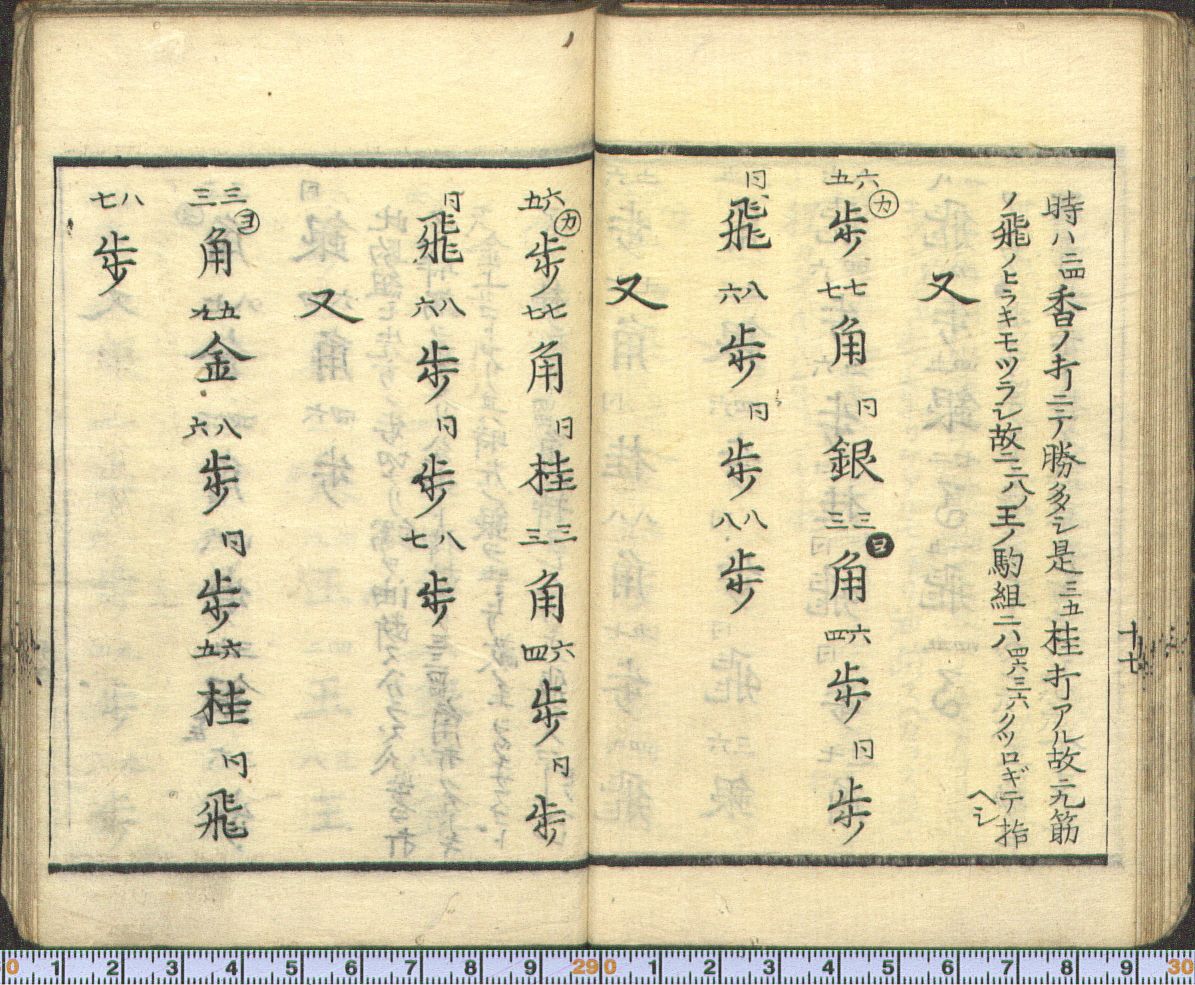 時ハ二四香ノ打ニテ勝多シ是三五桂打アル故ニ九筋
ノ飛ノヒラキモツラレ故ニ二八ノ王ノ駒組ニハ四六三六クツロギテ指ヘシ
又
六五歩カ七七角同銀三三角ヨ六四歩同歩
同飛八六歩同歩八八歩
又
十七
六五歩カ七七角同桂三三角六四歩同歩
同飛八六歩同歩八七歩
又
三三角ヨ五九金八六歩同歩六五桂同飛
八七歩